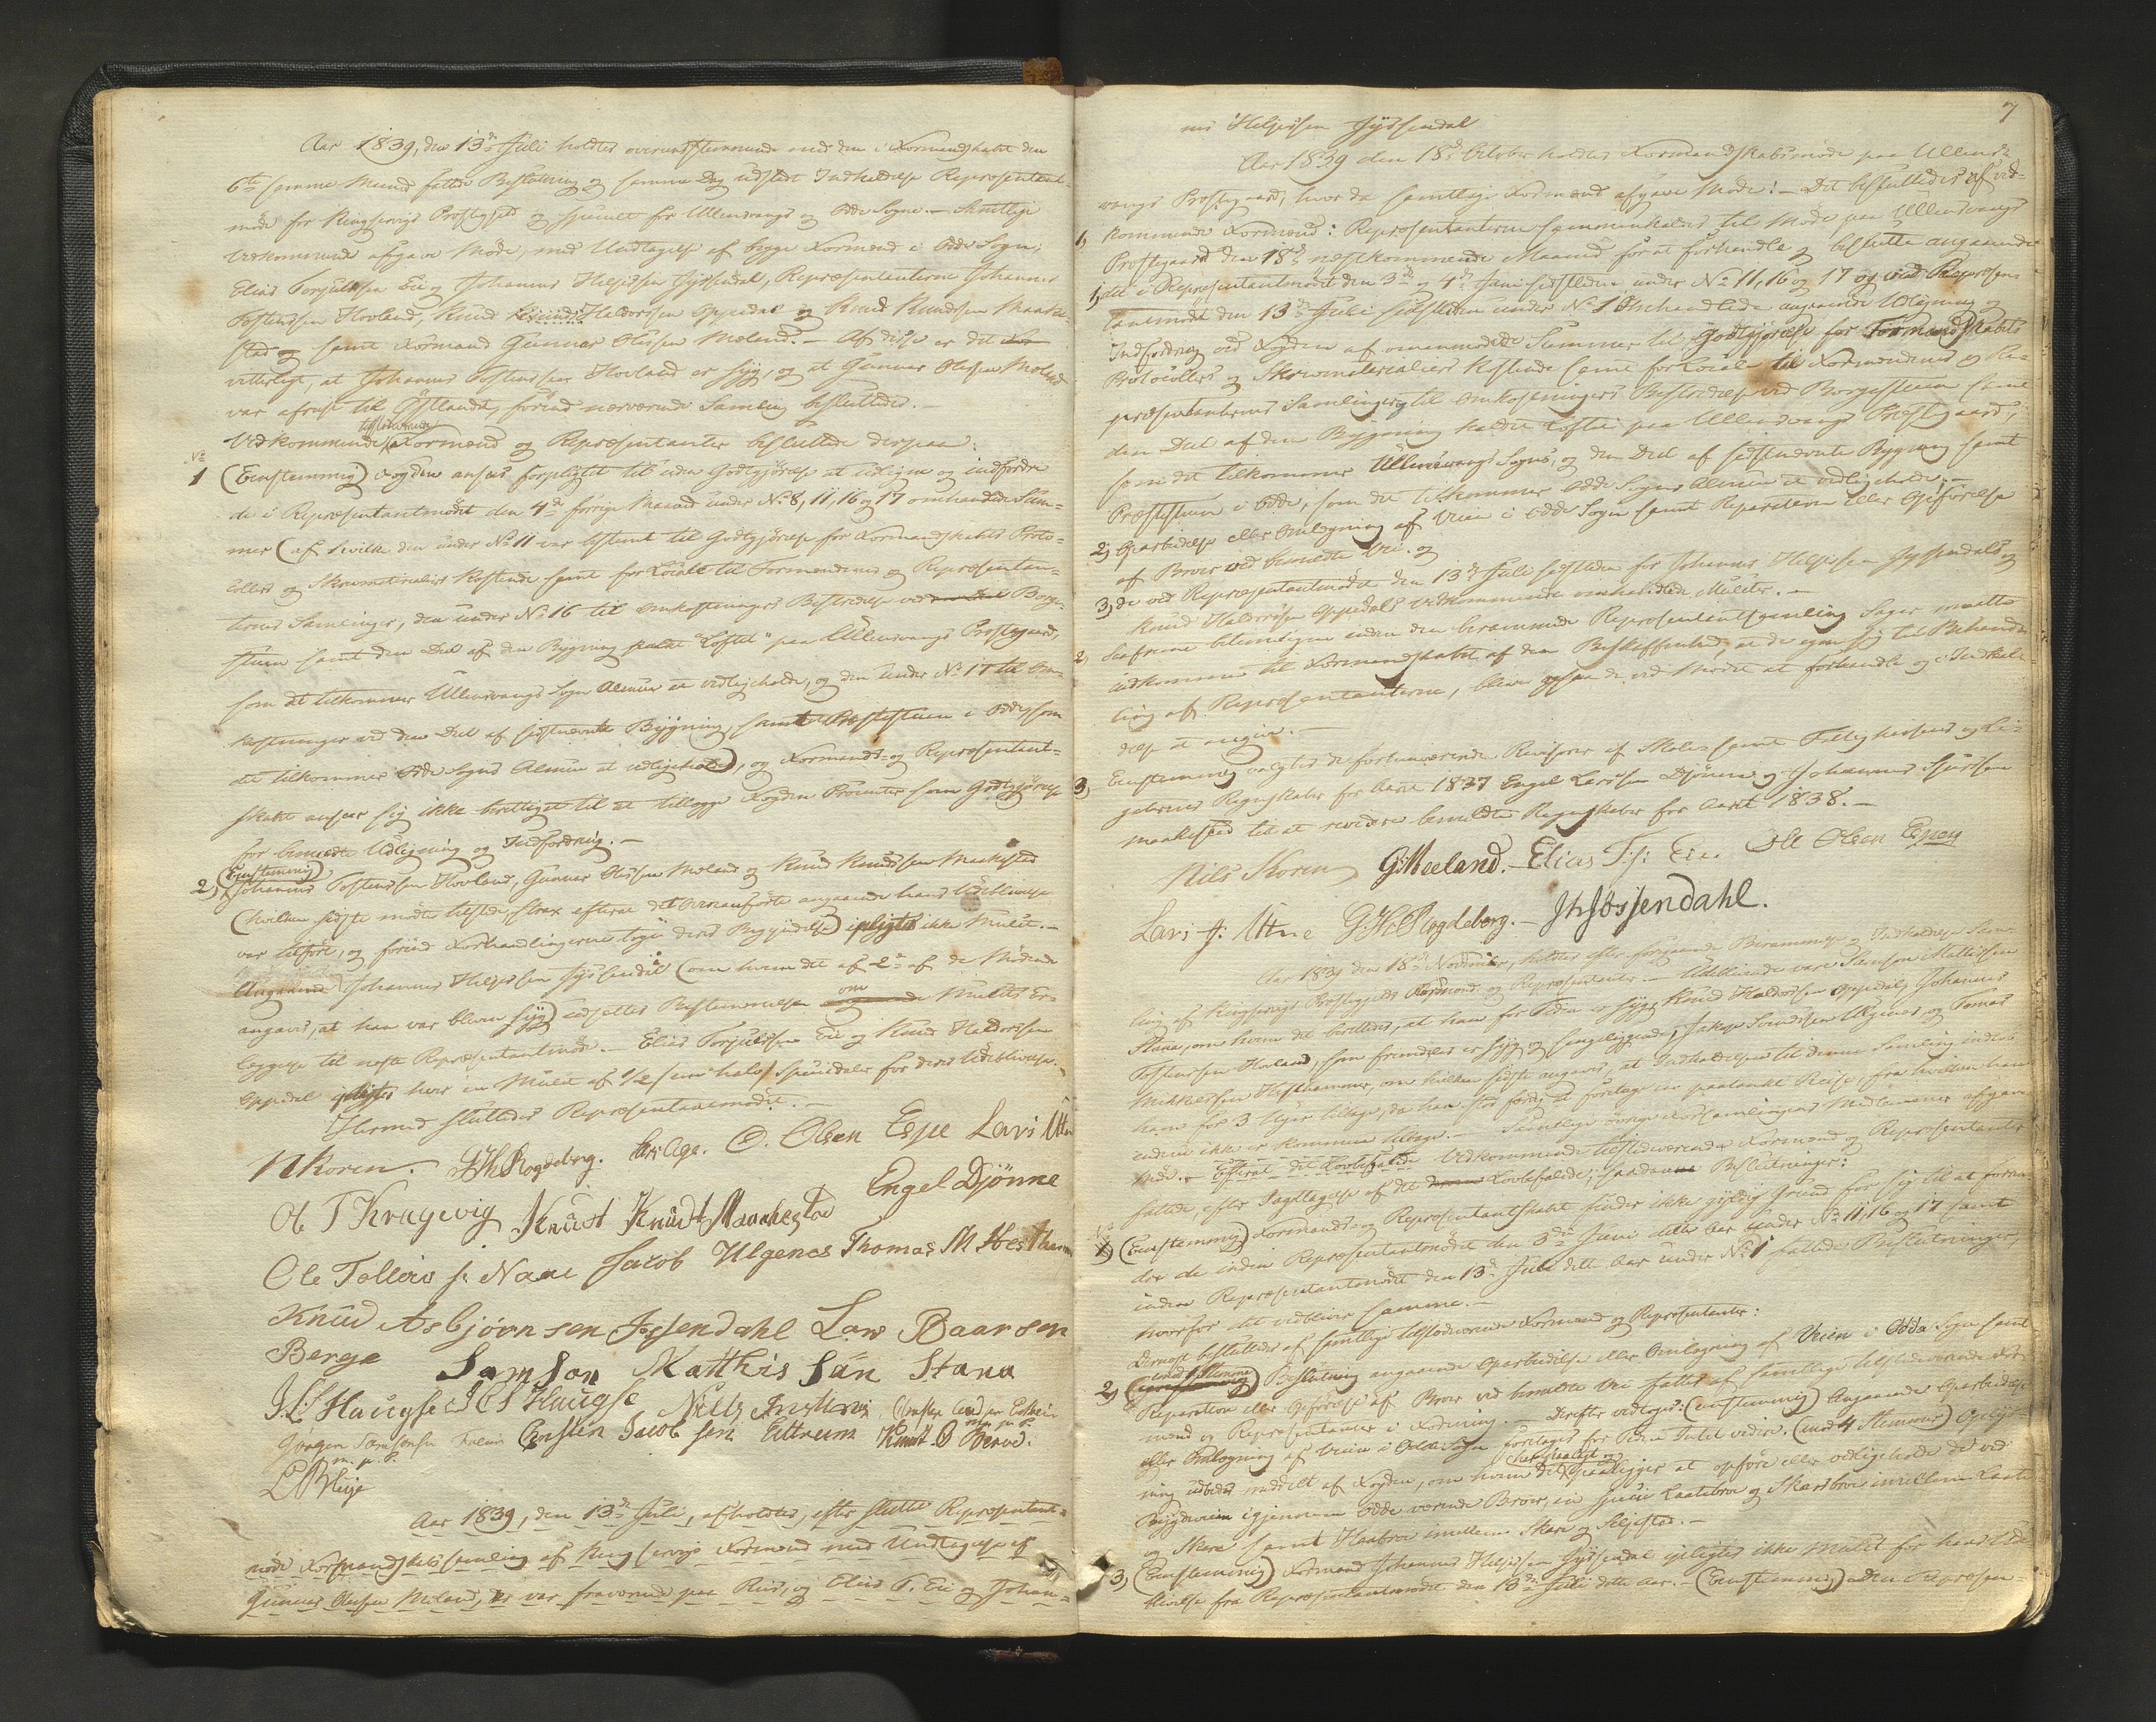 Aar 1839, den 13de Juli holdtes overensstemmende med den i Formandskabet den
6te samme Maaned fattede Beslutning og samme Dag udstedt Indkaldelse Repræsentant-
møde for Kingservigs Præstegjeld og specielt for Ullensvangs og Odde Sogne. – Samtlige
Vedkommende afgave Møde, med Undtagelse af begge Formænd i Odde Sogn,
Elias Torjulssen Eie og Johannes Helgessen Jyssendal, Repræsentanterne Johannes
Tostenssen Hovland, Knud Haldorssen Oppedal og Knud Knudssen Maake-
stad og samt Formand Gunnar Olssen Meland. – Af disse er det
vitterligt, at Johannes Tostenssen Hovland er syg, og at Gunnar Olssen Meland
var afreist til Østlandet, førend nærværende Samling besluttedes. –
Vedkommende tilstedeværende Formænd og Repræsentanter besluttede derpaa:
No
1 (Eenstemmig) Fogden ansees forpligtet til uden Godtgjørelse at udligne og indfordre
de i Repræsentantmødet den 4de forrige Maaned under No 8, 11, 16 og 17 omhandlede Sum-
mer (af hvilke den under No 11 var bestemt til Godtgjørelse for Formandskabets Proto-
collers og Skrivematerialiers Kostende samt for Locale til Formændenes og Repræsentan-
ternes Samlinger, den under No 16 til Omkostningers Bestridelse ved Borge-
stuen samt den Deel af den Bygning kaldet "Loftet" paa Ullensvangs Præstegaard,
som det tilkommer Ullensvangs Sogns Almue at vedligeholde, og den under No 17 til Om-
kostninger ved den Deel af sidstnævnte Bygning, samt Præstestuen i Odde, som
det tilkommer Odde Sogns Almue at vedligeholde), og Formands- og Repræsentant-
skabet anseer sig ikke berettiget til at tillægge Fogden Procenter som Godtgjørelse
for bemeldte Udligning og Indfordring. –
2) (Eenstemmig) Johannes Tostenssen Hovland, Gunnar Olssen Meland og Knud Knudssen Maakestad
(hvilken sidste mødte tilstede, strax efterat det ovenanførte angaaende hans Udeblivelse
var tilført, og førend Forhandlingerne toge deres Begyndelse) ipligtes ikke Mulct. –
Angaaende Johannes Helgessen Jyssendal (om hvem det af 2de af de Mødende
angaves, at han var bleven syg) udsættes Bestemmelsen om Mulcts Er-
læggelse til næste Repræsentantmøde. – Elias Torjulssen Eie og Knud Haldorssen
Oppedal ipligtes hver en Mulct af 1/2 /een halv/ Speciedaler for deres Udeblivelse.
Hermed sluttedes Repræsentantmødet. –
NKoren. GHRogdeberg. O. Olsen Espe Lars Utne
Ole T Kragevig Knudt Knudt Maakestad Engel Djønne
Ole Tollevs s: Naae Jacob Ulgenes Thomas M Hesthammer
Knud Asbjørnsen Jøssendahl Lars Baarsen
Berge Samson Matthis sän Stana
Carsten Jacob sen Eittreim Knudt O Berve.
m. p. P.
Aar 1839, den 13de Juli, afholdtes, efter sluttet Repræsentant-
møde Formandskabssamling af Kingservigs Formænd med Undtagelse af
Gunnar Olssen Meland, der var fraværende paa Reise, og Elias T. Eie og Johan-
7
nes Helgessen Jyssendal
Aar 1839 den 18de October holdtes Formandskabsmøde paa Ullens-
vangs Præstegaard, hvor da samtlige Formænd afgave Møde: – Det besluttedes af ved-
1) kommende Formænd: Repræsentanterne sammenkaldes til Møde paa Ullensvangs
Præstegaard den 18de næstkommende Maaned for at forhandle og beslutte angaaende
1, det i Repræsentantmødet den 3de og 4de Juni sidstleden under No 11, 16 og 17 og ved Repræsen-
tantmødet den 13de Juli sidstleden under No 1 Omhandlede angaaende Udligning og
Indfordring ved Fogden af omanmeldte Summer til Godtgjørelse for Formandskabets
Protocollers og Skrivematerialiers Kostende samt for Locale til Formændenes og Re-
præsentanternes Samlinger, til Omkostningers Bestridelse ved Borgestuen samt
den Deel af den Bygning kaldet Loftet paa Ullensvangs Præstegaard,
som det tilkommer Ullensvangs Sogns, og den Deel af sidstnævnte Bygning samt
Præstestuen i Odde, som det tilkommer Odde Sogns Almue at vedligeholde. –
2) Oparbeidelse eller Omlægning af Veien i Odde Sogn samt Reparation eller Opførelse
af Broer ved bemeldte Vei. og
3) de ved Repræsentantmødet den 13de Juli sidstleden for Johannes Helgessen Jyssendals og
Knud Haldorssen Oppedals Vedkommende omhandlede Mulcter. –
2) Saafremt betimeligen inden den berammede Repræsentantsamling Sager maatte
indkomme til Formandskabet af den Beskaffenhed, at de egne sig til Behand-
ling af Repræsentanterne, blive ogsaa de ved Mødet at forhandle og i Indkal-
delse at angive. –
3) Eenstemmig valgtes de forhenværende Revisorer af Skole- samt Fattigkassens og Li-
Regnskaber for Aaret 1837 Engel Larssen Djønne og Johannes Sjurssen
Maakestad til at revidere bemeldte Regnskaber for Aaret 1838. –
Nils Koren G: Meeland. Elias T. s: Eie. Ole Olsen Espen
Lars J: Utne G: H: Rogdeberg. – JHJøssendahl.
Aar 1839 den 18de November, holdtes efter foregaaende Berammelse og Indkaldelse Sam-
ling af Kingservigs Præstegjelds Formænd og Repræsentanter. – Udeblivende vare Samson Mattissen
Stana, om hvem det berettedes, at han for Tiden er syg, Knud Haldorssen Oppedal, Johannes
Tostenssen Hovland, som fremdeles er syg og sengeliggende, Jakop Svendssen Ulgenes, og Tomas
Mikkelssen Hesthammer, om hvilken sidste angaves, at Indkaldelsen til denne Samling indløb
ham for 3 Uger tilbage, da han stod færdig at foretage en paatænkt Reise, fra hvilken han
endnu ikke er kommen tilbage. – Samtlige øvrige Forsamlingens Medlemmer afgave
Møde. – Efterat det Lovbefalede Vedkommende tilstedeværende Formænd og Repræsentanter
fattede, efter Iagttagelse af det Lovbefalede, saadanne Beslutninger:
No
1) (Eenstemmig) Formands- og Repræsentantskabet finder ikke gyldig Grund for sig til at foran-
dre de inden Repræsentantmødet den 3de Juni dette Aar under No 11, 16 og 17 samt
inden Repræsentantmødet den 13de Juli dette Aar under No 1 fattede Beslutninger,
hvorfor det vedbliver samme. –
Dernæst besluttedes af samtlige tilstedeværende Formænd og Repræsentanter:
2) Beslutning angaaende Oparbeidelse eller Omlægning af Veien i Odda Sogn samt
Reparation eller Opførelse af Broer ved bemeldte Vei fattes af samtlige tilstedeværende For-
mænd og Repræsentanter i Forening. – Derefter vedtoges: (Eenstemmig) Angaaende Oparbeidelse
eller Omlægning af Veien i Odda Sogn foretages for Tiden Intet videre. (med 4 Stemmer) Oplys-
ning udbedes meddelt af Fogden, om hvem det paaligger at opføre eller vedligeholde de ved
Bygdeveien igjennem Odde værende Broer, in specie Laatebroe og Skaresbroe imellem Laate
og Skare samt Haabroe imellem Skare og Seljestad. –
3) (Eenstemmig) Formand Johannes Helgessen Jyssendal ipligtes ikke Mulct for hans Ude-
blivelse fra Repræsentantmødet den 13de Juli dette Aar. – (Eenstemmig) Den i Repræsen-